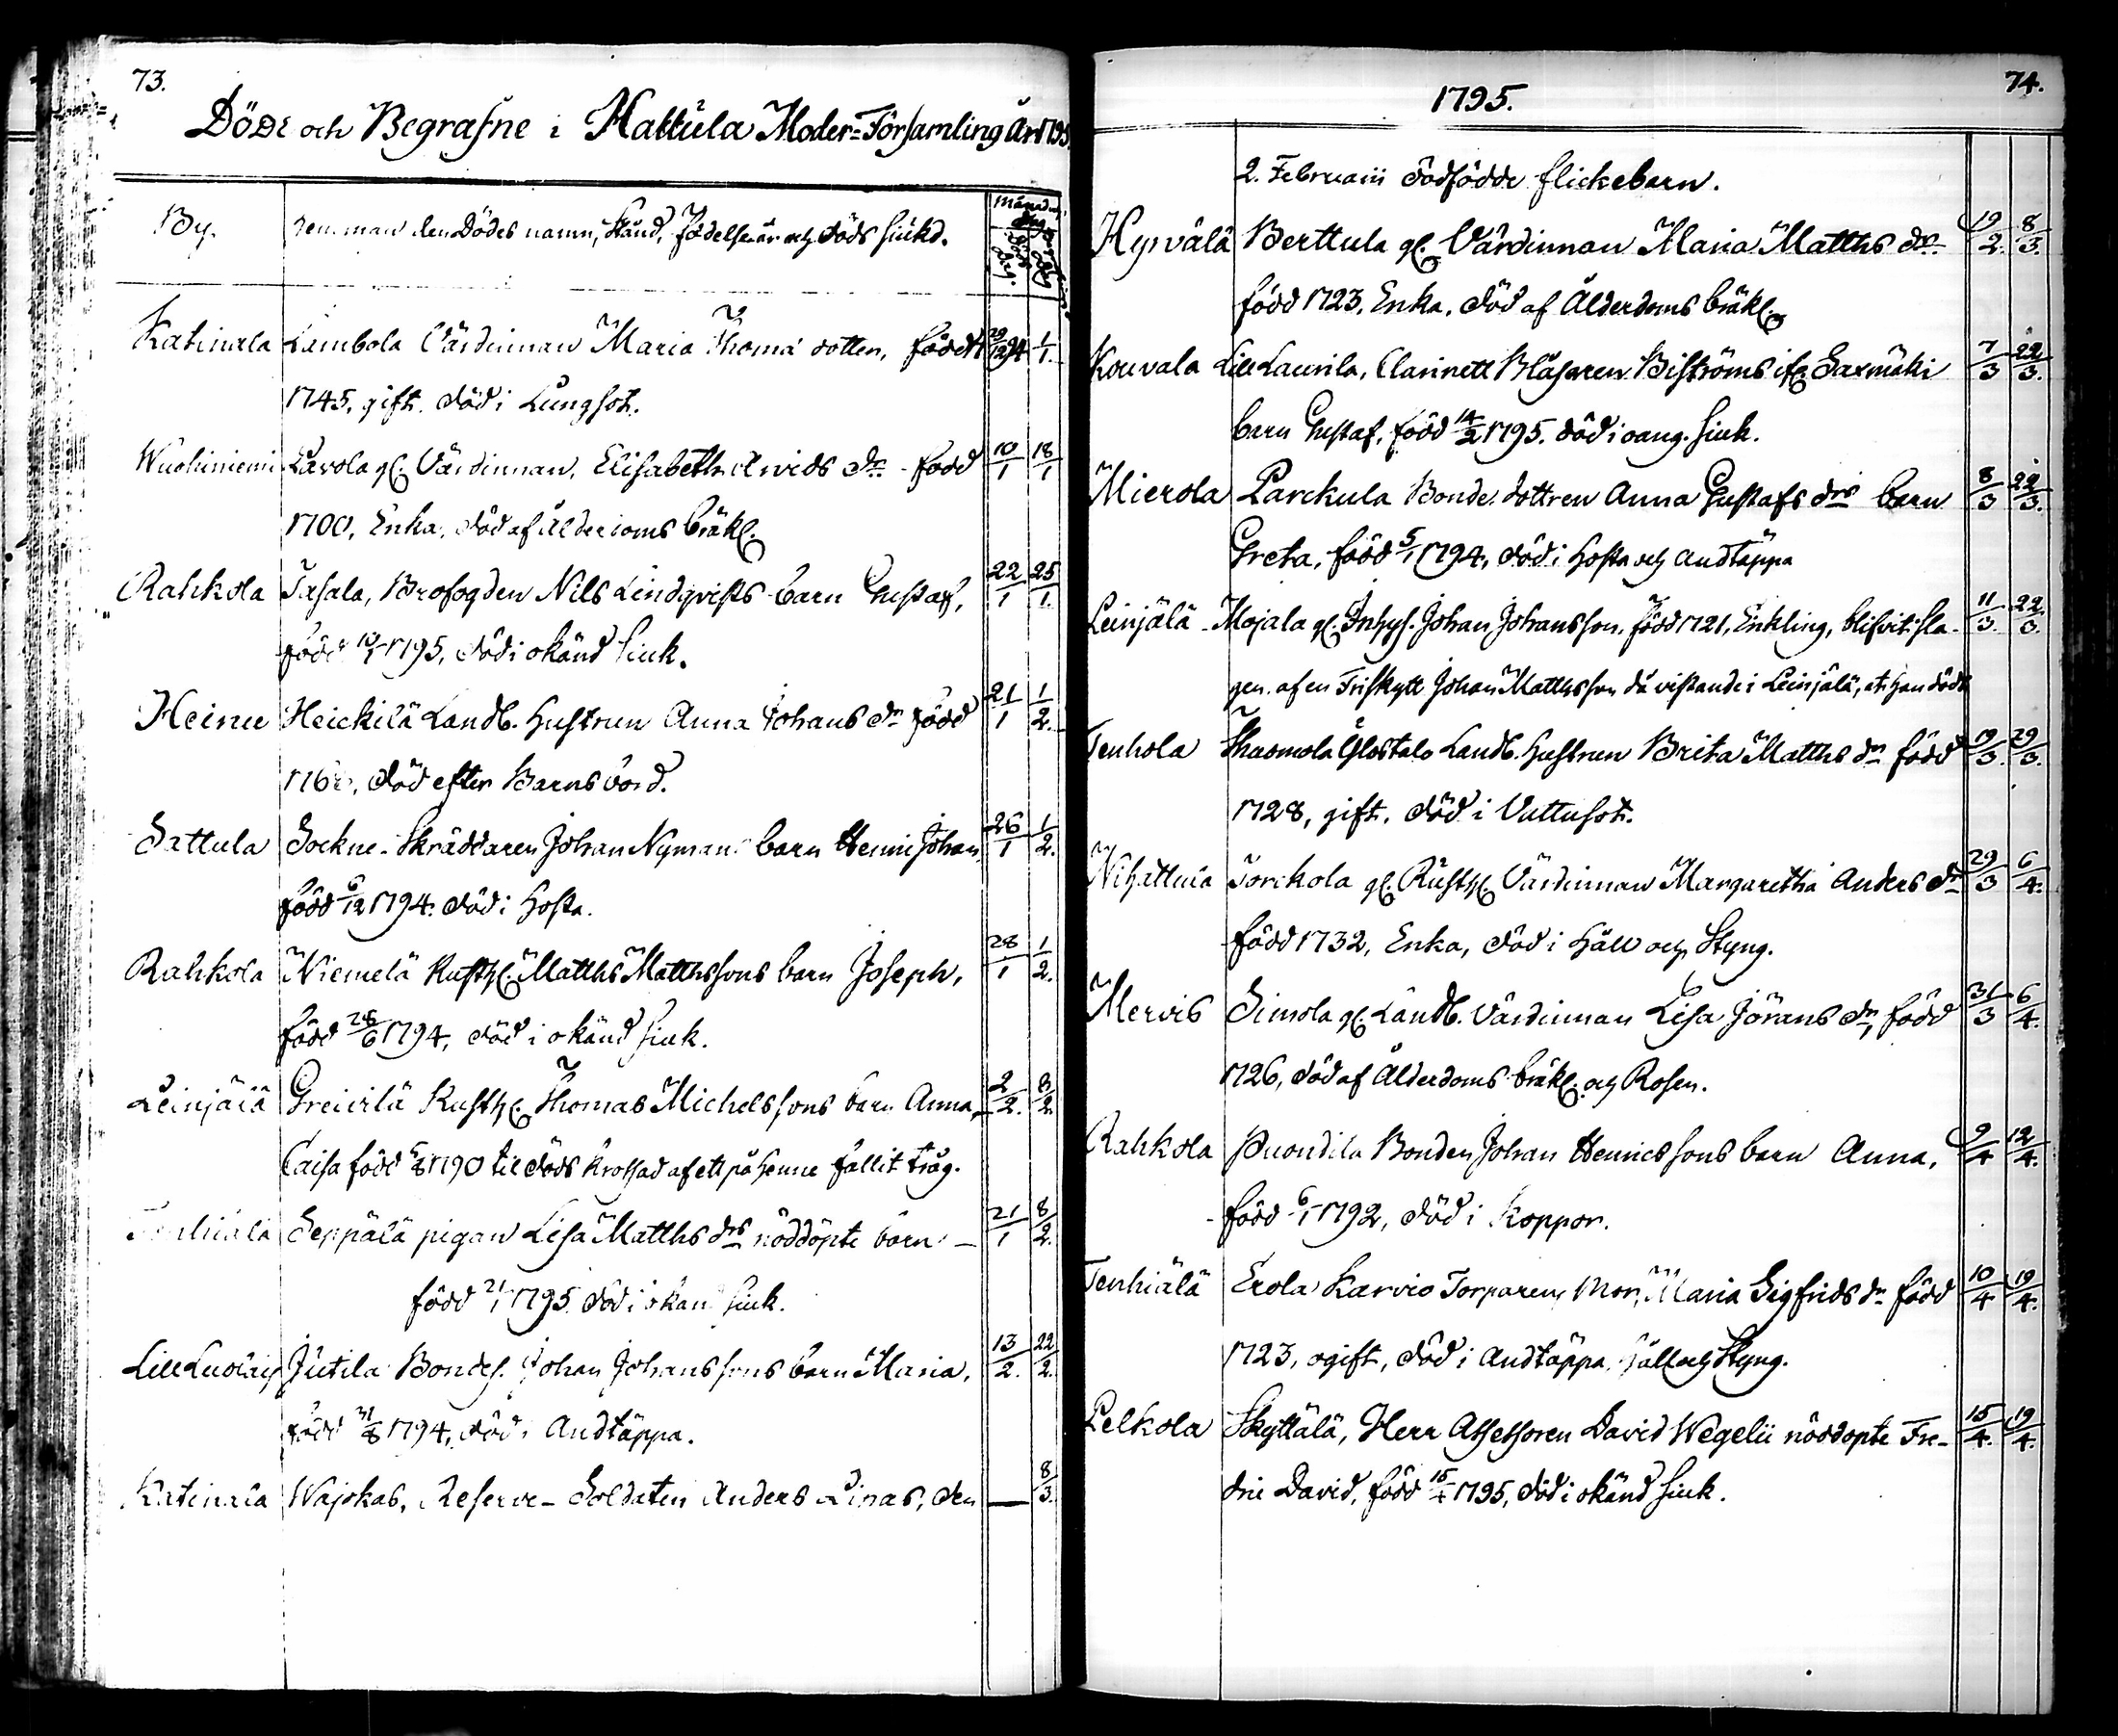 73.
Döde och Begrafne i Hattula Moder=Församling År 1795
By. man den Dödes namn, Stånd, Födelse år och döds siukd.
Månad
Katinala Lambola Värdinnan Maria Thomæ dotter, född 29/12 94 1/1.
1745, gift. död i Lungsot.
Wuohiniemi Lavola gl. Värdinnan, Elisabeth Arvids dr. född 10/1 18/1
1700, Enka, död af ålderdoms bräkl.
Rahkola Brofogden Nils Lindqvists barn Gustaf, 22/1 25/1.
född 10/1 1795, död i okänd siuk.
Heinu Heickilä Landb. Hustrun Anna Johans dr född 21/1 1/2.
död efter Barnsbörd.
Sattula Sockne-Skräddaren Johan Nymans barn Henric Johan, 26/1 1/2.
född 6/12 1794. död i Hosta.
Rahkola Niemelä Rusth. Matths Matthssons barn Joseph, 28/1 1/2.
född 28/6 1794, död i okänd siuk.
Leinjälä Rusth. Thomas Michelssons barn Anna 2/2. 8/2.
Caisa född 1790 til döds krossad af ett på henne fallit tråg.
Tenhiälä Seppälä pigan Lisa Matths drs nöddöpte barn — 21/1 8/2.
född 21/1 1795. död i okänd siuk.
Lill Luolais Jutila Bondes. Johan Johanssons barn Maria, 13/2. 22/2.
född 31/8 1794, död i Andtäppa.
Katinala Wajokas, Reserve-Soldaten Anders den — 8/3.
1795.
74.
2. Februarii dödfödde flickebarn.
Hyrvälä Berttula gl. Värdinnan Maria Matths dr. 19/2. 8/3.
född 1723, Enka, död af Ålderdoms bräkl.
Kouvala Lill Laurila, Clarinett Blåsaren Biströms Saxmäki 7/3 22/3.
barn Gustaf, född 14/2 1795. död i oang. siuk.
Mierola Parckula Bonde dottren Anna Gustafs drs barn 8/3 22/3.
Greta, född 5/1 1794, död i Hosta och Andtäppa
Leinjälä Mojala gl. Inhys. Johan Johansson, född 1721, Enkling, blifvit sla- 11/3. 22/3.
gen af en Friskytt Johan Matthsson då vistande i Leinjälä, at han dödt
Tenhola Landb. Hustrun Brita Matths dr född 19/3. 29/3.
1728, gift, död i Vattusot.
Nihattula Törckola gl. Rusth. Värdinnan Margaretha Anders dr 29/3 6/4.
född 1732, Enka, död i Håll och Styng.
Mervis Simola gl. Landb. Värdinnan Lisa Jörans dr, född 31/3 6/4.
1726, död af Ålderdoms bräkl. och Rosen.
Rahkola Puondila Bonden Johan Henricssons barn Anna, 9/4 12/4.
född 6/1 1792, död i Koppor.
Tenhiälä Erola Karvio Torparens Mor, Maria Sigfrids dr född 10/4 19/4.
1723, ogift, död i Andtäppa, Håll och Styng.
Pelkola Skyttälä, Herr Assessoren David Wegelii nöddöpte Fre- 15/4. 19/4.
dric David, född 15/4 1795, död i okänd siuk.